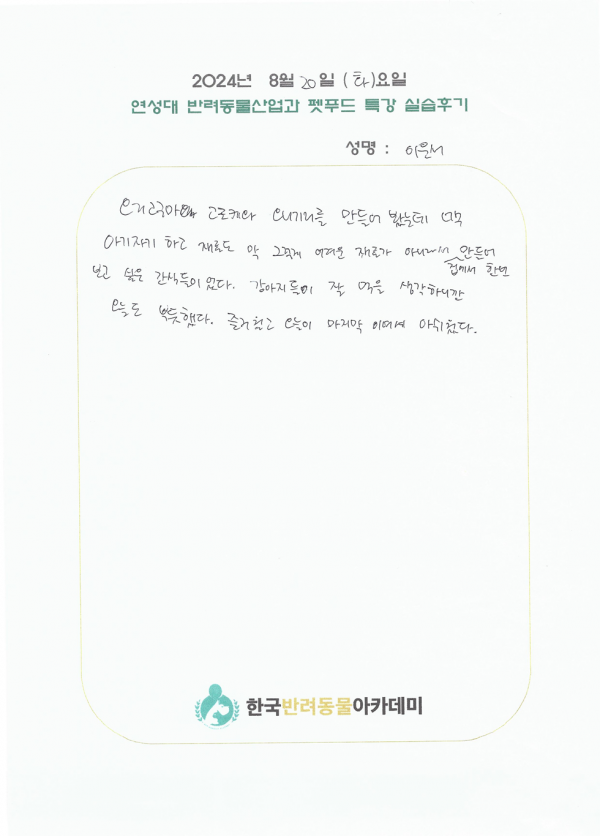 2024년 8월 20일 (화)요일
연성대 반려동물산업과 펫푸드 특강 실습후기
성명 : 이윤서
고로케와 만들어 봤는데 너무
아기자기 하고 재료도 막 그렇게 어려운 재료가 아니라서 만들어
집에서 한번
보고 싶은 간식들이었다. 강아지들이 잘 먹을 생각하니깐
오늘도 뿌듯했다. 즐거웠고 오늘이 마지막 이어서 아쉬웠다.
한국반려동물아카데미